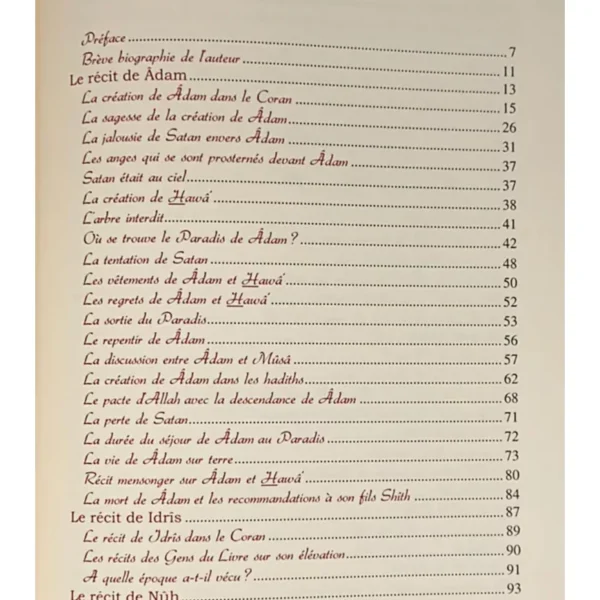 Préface ........ 7
Brève biographie de l'auteur ........ 11
Le récit de Âdam ........ 13
La création de Âdam dans le Coran ........ 15
La sagesse de la création de Âdam ........ 26
La jalousie de Satan envers Âdam ........ 31
Les anges qui se sont prosternés devant Âdam ........ 37
Satan était au ciel ........ 37
La création de Hawâ' ........ 38
L'arbre interdit ........ 41
Où se trouve le Paradis de Âdam ? ........ 42
La tentation de Satan ........ 48
Les vêtements de Âdam et Hawâ' ........ 50
Les regrets de Âdam et Hawâ' ........ 52
La sortie du Paradis ........ 53
Le repentir de Âdam ........ 56
La discussion entre Âdam et Mûsâ ........ 57
La création de Âdam dans les hadiths ........ 62
Le pacte d'Allah avec la descendance de Âdam ........ 68
La perte de Satan ........ 71
La durée du séjour de Âdam au Paradis ........ 72
La vie de Âdam sur terre ........ 73
Récit mensonger sur Âdam et Hawâ' ........ 80
La mort de Âdam et les recommandations à son fils Shîth ........ 84
Le récit de Idrîs ........ 87
Le récit de Idrîs dans le Coran ........ 89
Les récits des Gens du Livre sur son élévation ........ 90
A quelle époque a-t-il vécu ? ........ 91
Le récit de Nûh ........ 93